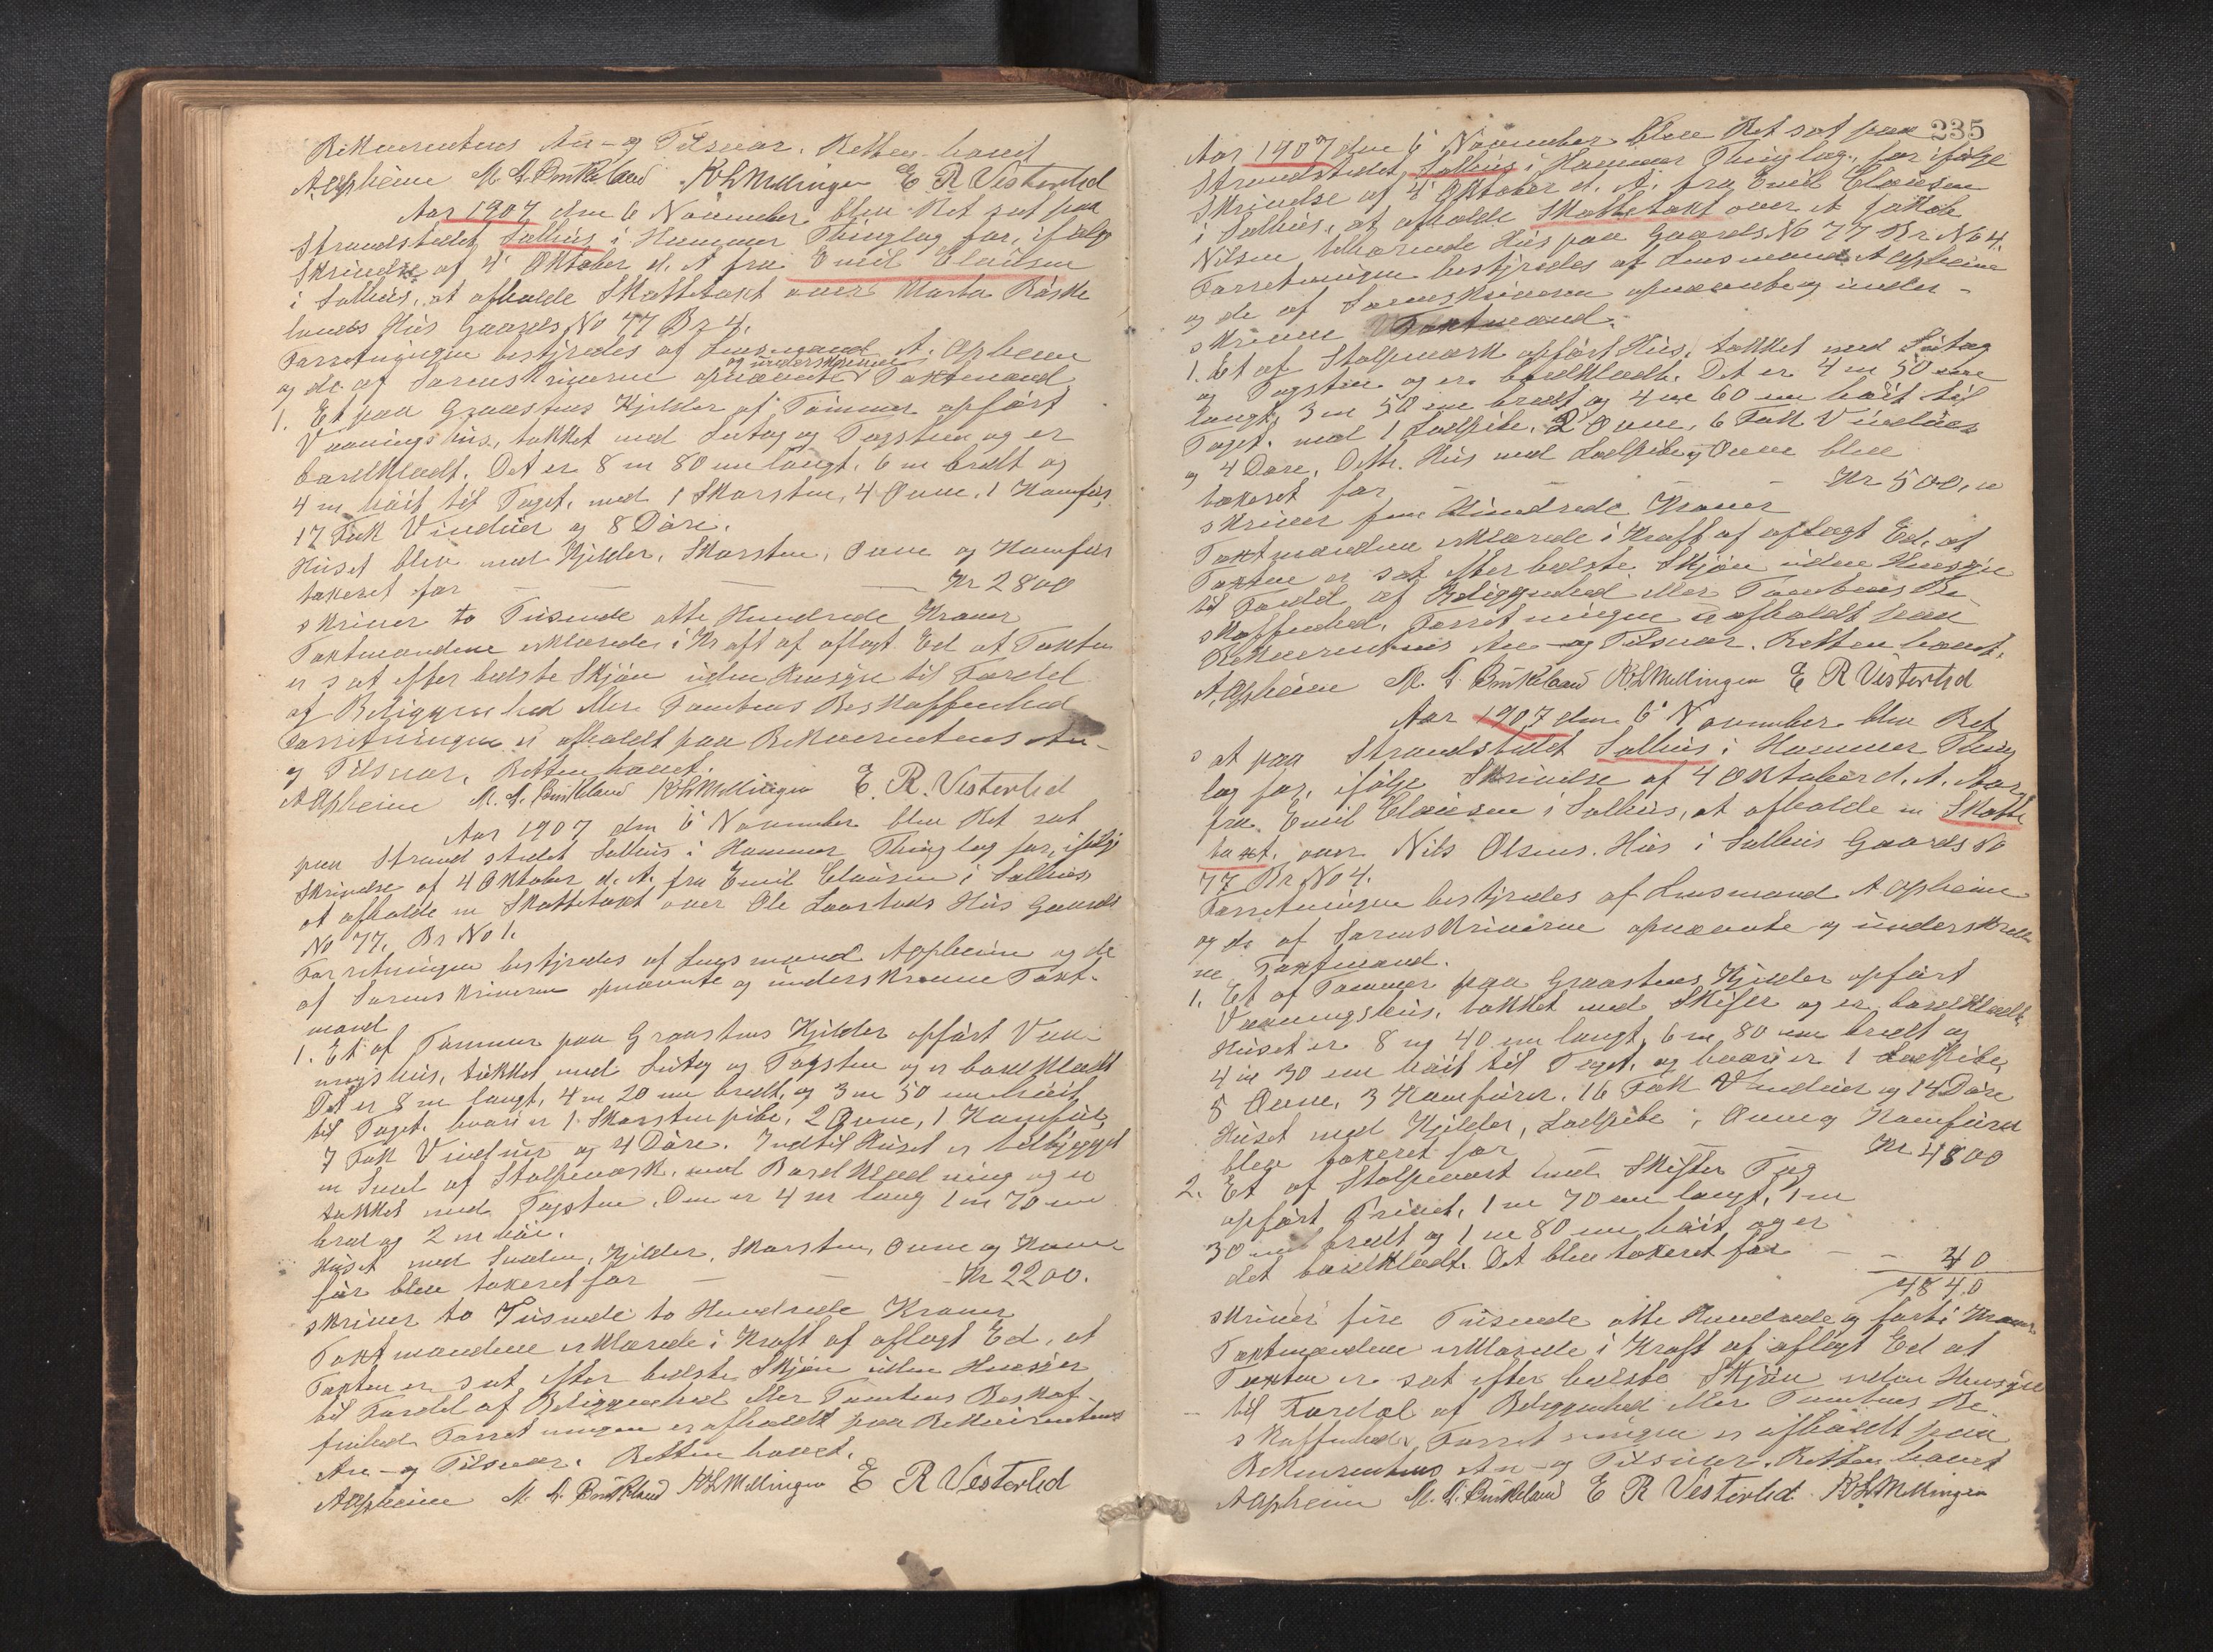 Rekvirentens An- og Tilsvar. Retten hævet
A Opheim M. G. Birkeland K L Mellingen E R Vesterlid
Aar 1907 den 6 November blev Ret sat paa
Strandstedet Salhus i Hammer Thinglag for, ifølge
Skrivelse af 4 Oktober d. A fra Emil Clausen
i Salhus, at afholde Skattetakt over Marta
lands Hus Gaards No 77 Br 4.
Forretningen bestyredes af Lensmand A. Opheim
og de af Sorenskriveren opnævnte og underskrevne Taktmænd
1. Et paa Graastens Kjelder af Tømmer opført
Vaaningshus, tækket med Sutag og Tagsten og er
bordklædt. Det er 8 m 80 cm langt, 6 m bredt og
4 m høit til Taget, med 1 Skorsten, 4 Ovne, 1 Komfur,
17 Fak Vinduer og 8 Døre.
Huset blev med Kjelder, Skorsten, Ovne og Komfur
takseret for — — — Kr 2800
skriver to Tusinde otte Hundrede Kroner
Taktmændene erklærede i Kraft af aflagt Ed at Takten
er sat efter bedste Skjøn uden Hensyn til Fordel
af Beliggenhed eller Tomtens Beskaffenhed
Forretningen er afholdt paa Rekvirentens An-
og Tilsvar. Retten hævet.
A Opheim M. G. Birkeland K L Mellingen E. R. Vesterlid
Aar 1907 den 6 November blev Ret sat
paa Strandstedet Salhus i Hammer Thinglag for, ifølge
Skrivelse af 4 Oktober d. A. fra Emil Clausen i Salhus
at afholde en Skattetakt over Ole Hus Gaards
No 77, Br No 1.
Forretningen bestyredes af Lensmand A Opheim og de
af Sorenskriveren opnævnte og underskrevne Takt-
mænd
1. Et af Tømmer paa Graastens Kjelder opført Vaa-
ningshus, tækket med Sutag og Tagsten og er bordklædt
Det er 8 m langt, 4 m 20 cm bredt, og 3 m 50 cm høit
til Taget, hvori er 1 Skorstenspibe, 2 Ovne, 1 Komfur,
7 Fak Vinduer og 4 Døre. Indtil Huset er tilbygget
en Sval af Stolpeværk, med Bordklædning og er
tækket med Tagsten. Den er 4 m lang 1 m 70 cm
bred og 2 m høi.
Huset med Svalen, Kjelder, Skorsten, Ovne og Kom-
fur blev takseret for — — Kr 2200.
skriver to Tusinde to Hundrede Kroner
Taktmændene erklærede i Kraft af aflagt Ed, at
Takten er sat efter bedste Skjøn uden Hensyn
til Fordel af Beliggenhed eller Tomtens Beskaf-
fenhed Forretningen er afholdt paa Rekvirentens
An- og Tilsvar. Retten hævet.
A Opheim M. G. Birkeland K L Mellingen E R Vesterlid
235
Aar 1907 den 6 November blev Ret sat paa
Strandstedet Salhus i Hammer Thinglag, for ifølge
Skrivelse af 4 Oktober d. A. fra Emil Clausen
i Salhus, at afholde Skattetakt over A Jakob
Nilsen tilhørende Hus paa Gaards No 77 Br No 4.
Forretningen bestyredes af Lensmand A Opheim
og de af Sorenskriveren opnævnte og under-
skrevne Taktmænd.
1. Et af Stolpeværk opført Hus, tækket med Sutag
og Tagsten og er bordklædt. Det er 4 m 50 cm
langt, 3 m 50 cm bredt og 4 m 60 cm høit til
Taget, med 1 Lodpibe, 2 Ovne, 6 Fak Vinduer
og 4 Døre. Dette Hus med Lodpibe og Ovne blev
takseret for — — — Kr 500,00
skriver fem Hundrede Kroner
Taktmændene erklærede i Kraft af aflagt Ed, at
Takten er sat efter bedste Skjøn uden Hensyn
til Fordel af Beliggenhed eller Tomtens Be-
skaffenhed. Forretningen er afholdt paa
Rekvirentens An- og Tilsvar. Retten hævet.
A Opheim M. G. Birkeland K L Mellingen E R Vesterlid
Aar 1907 den 6 November blev Ret
sat paa Strandstedet Salhus i Hammer Thing
lag for, ifølge Skrivelse af 4 Oktober d. A. Aar
fra Emil Clausen i Salhus, at afholde en Skatte
takt, over Nils Olsens Hus i Salhus Gaards No
77 Br. No 4.
Forretningen bestyredes af Lensmand A Opheim
og de af Sorenskriveren opnævnte og underskrev
ne Taktmænd.
1. Et af Tømmer paa Graastens Kjelder opført
Vaaningshus, tækket med Skifer og er bordklædt,
Huset er 8 m 40 cm langt, 6 m 80 cm bredt og
4 m 30 cm høit til Taget, og hvori er 1 Lodpibe,
5 Ovne, 3 Komfurer, 16 Fak Vinduer og 14 Døre
Huset med Kjelder, Lodpibe, Ovne og Komfurer
blev takseret for — — Kr 4800
2. Et af Stolpeværk med Skifer Tag
opført Privet, 1 m 70 cm langt, 1 m
30 cm bredt og 1 m 80 cm høit og er
det bordklædt. Det blev takseret for — — 40
4840
skriver fire Tusinde otte Hundrede og førti Kroner
Taktmændene erklærede i Kraft af aflagt Ed at
Takten er sat efter bedste Skjøn uden Hensyn
til Fordel af Beliggenhed eller Tomtens Be-
skaffenhed. Forretningen er afholdt paa
Rekvirentens An- og Tilsvar. Retten hævet
A Opheim M. G. Birkeland E R Vesterlid K L Mellingen